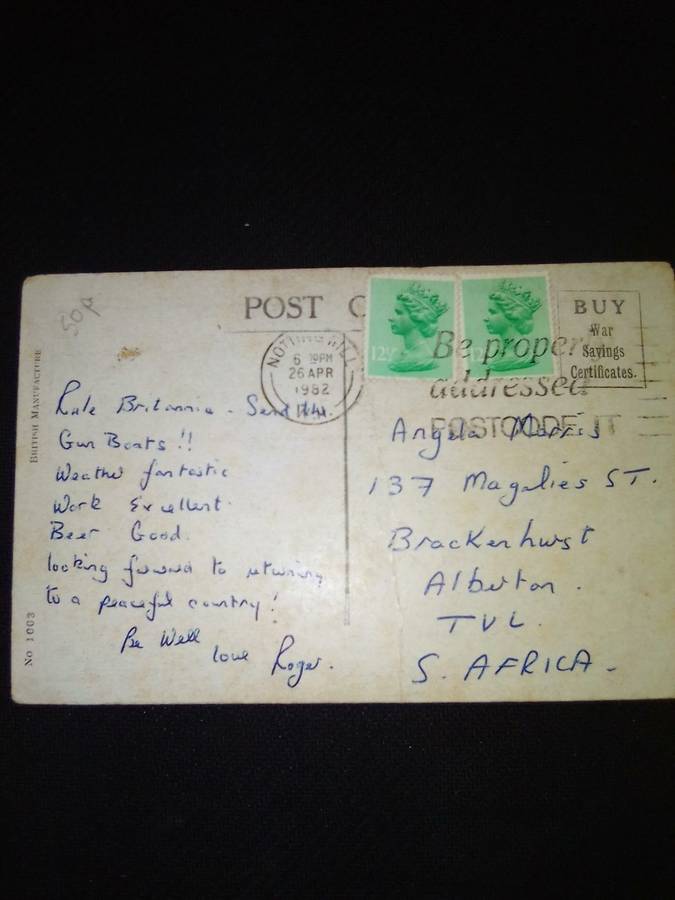 50p
POST C
BUY
War
Savings
Certificates.
NOTTING HILL
6 19PM
26 APR
1982
12½
Be proper
addressed
POSTCODE IT
BRITISH MANUFACTURE
No 1003
Rule Britannia - Send the
Gun Boats !!
Weather fantastic
Work Excellent.
Beer Good.
looking forward to returning
to a peaceful country!
Be Well
love Roger.
Angela Morris
137 Magalies ST.
Brackenhurst
Alberton.
TVL.
S. AFRICA.